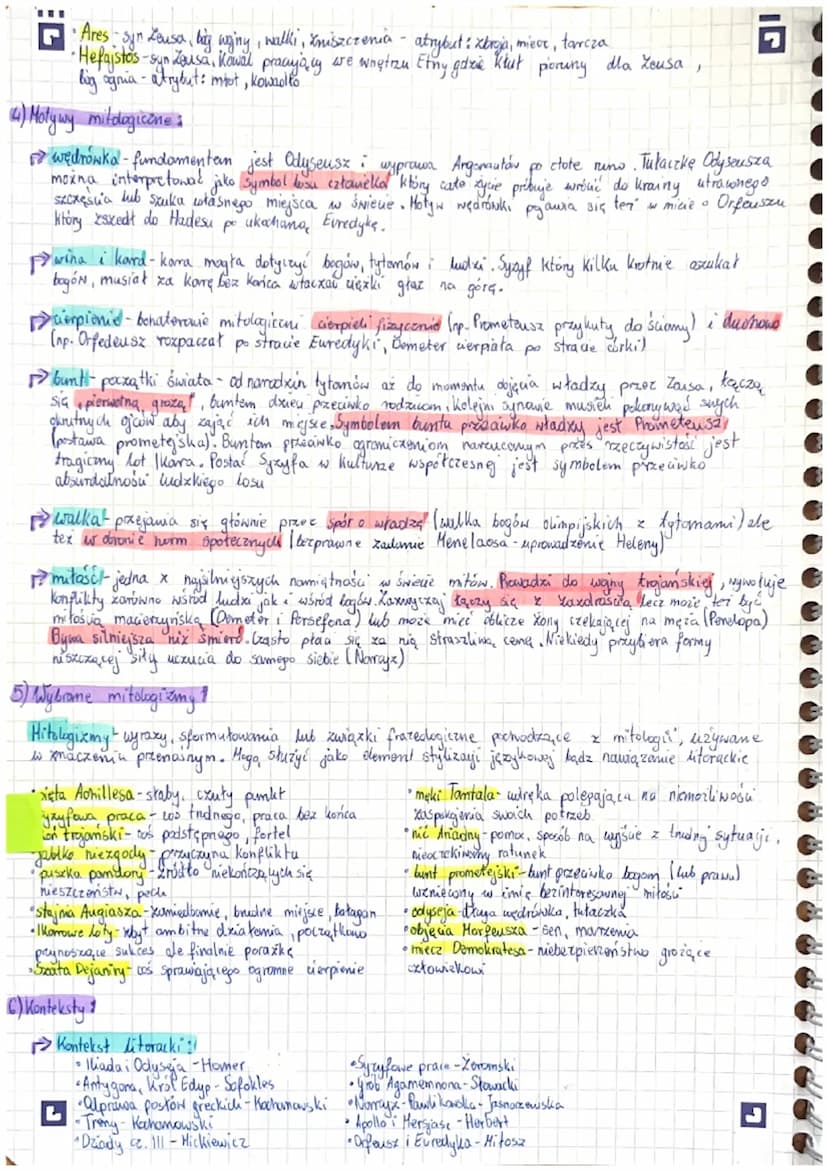 • Ares - syn Zeusa, bóg wojny, walki, zniszczenia - atrybut: zbroja, miecz, tarcza
• Hefajstos - syn Zeusa, Kowal pracujący we wnętrzu Etny gdzie kłuł pioruny dla Zeusa,
bóg ognia - atrybut: młot, kowadło
4) Motywy mitologiczne:
wędrówka - fundamentem jest Odyseusz i wyprawa Argonautów po złote runo. Tułaczkę Odyseusza
można interpretować jako symbol losu człowieka który całe życie próbuje wrócić do krainy utraconego
szczęścia lub szuka własnego miejsca w świecie. Motyw wędrówki pojawia się też w micie o Orfeuszu
który zszedł do Hadesu po ukochaną Eurydykę.
wina i kara - kara mogła dotyczyć bogów, tytanów i ludzi. Syzyf który kilku krotnie oszukał
bogów, musiał za karę bez końca wtaczać ciężki głaz na górę.
cierpienie - bohaterowie mitologiczni cierpieli fizycznie (np. Prometeusz przykuty do ściany) i duchowo
(np. Orfedeusz rozpaczał po stracie Eurydyki, Demeter cierpiała po stracie córki)
bunt - początki świata - od narodzin tytanów aż do momentu objęcia władzy przez Zeusa, łączą
się „pierwotną grozą", buntem dzieci przeciwko rodzicom, kolejni synowie musieli pokonywać swych
okrutnych ojców aby zająć ich miejsce, Symbolem buntu przeciwko władzy jest Prometeusz
(postawa prometejska). Buntem przeciwko ograniczeniom narzuconym przez rzeczywistość jest
tragiczny lot Ikara. Postać Syzyfa w kulturze współczesnej jest symbolem przeciwko
absurdalności ludzkiego losu
walka - przejawia się głównie przez spór o władzę (walka bogów olimpijskich z tytanami) ale
też w obronie norm społecznych (bezprawne zadanie Menelaosa - uprowadzenie Heleny)
miłość - jedna z najsilniejszych namiętności w świecie mitów. Prowadzi do wojny trojańskiej, wywołuje
konflikty zarówno wśród ludzi jak i wśród bogów. Zazwyczaj łączy się z zazdrością lecz może też być
miłością macierzyńską (Demeter i Persefona) lub może mieć oblicze żony czekającej na męża (Penelopa)
Bywa silniejsza niż śmierć. Często płaci się za nią straszliwą cenę. Niekiedy przybiera formy
niszczącej siły uczucia do samego siebie (Narcyz)
5) Wybrane mitologizmy:
Mitologizmy - wyrazy, sformułowania lub związki frazeologiczne pochodzące z mitologii, używane
w znaczeniu przenośnym. Mogą służyć jako element stylizacji językowej bądź nawiązanie literackie
• pięta Achillesa - słaby, czuły punkt
syzyfowa praca - coś trudnego, praca bez końca
koń trojański - coś podstępnego, fortel
jabłko niezgody - przyczyna konfliktu
• puszka pandory - źródło niekończących się
nieszczęństw, pech
• stajnia Augiasza - zaniedbanie, brudne miejsce, bałagan
• Ikarowe loty - zbyt ambitne działania, początkowo
przynoszące sukces ale finalnie porażkę
• Szata Dejaniry - coś sprawiającego ogromne cierpienie
• męki Tantala - udręka polegająca na niemożliwości
zaspokojenia swoich potrzeb
• nić Ariadny - pomoc, sposób na wyjście z trudnej sytuacji,
nieoczekiwany ratunek
• bunt prometejski - bunt przeciwko bogom (lub prawu)
wzniecony w imię bezinteresownej miłości
• odyseja - długa wędrówka, tułaczka
• objęcia Morfeusza - sen, marzenia
• miecz Demokratesa - niebezpieczeństwo grożące
człowiekowi
6) Konteksty:
Kontekst literacki:
• Iliada i Odyseja - Homer
• Antygona, Król Edyp - Sofokles
• Odprawa posłów greckich - Kochanowski
• Treny - Kochanowski
• Dziady cz. III - Mickiewicz
• Syzyfowe prace - Żeromski
• Grób Agamemnona - Słowacki
• Narcyz - Pawlikowska - Jasnorzewska
• Apollo i Marsjasz - Herbert
• Orfeusz i Eurydyka - Miłosz